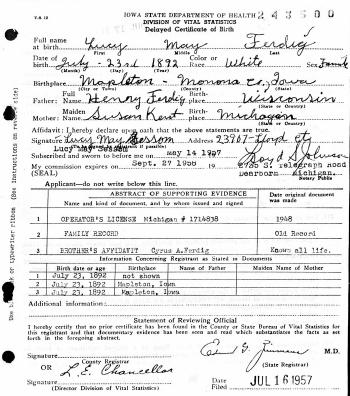 V.S. 12
IOWA STATE DEPARTMENT OF HEALTH 243600
DIVISION OF VITAL STATISTICS
Delayed Certificate of Birth
Full name at birth Lucy May Ferdig
First Middle Last
Date of birth July - 23rd 1892 Color or Race White Sex Female
(Month) (Day) (Year)
Birthplace Mapleton - Monona Co, Iowa
Full
Father: Name Henry Ferdig Birthplace Wisconsin
(State or Country)
Maiden
Mother: Name Susan Kent Birthplace Michigan
(State or Country)
Affidavit: I hereby declare upon oath that the above statements are true.
Signature Lucy May Address 23967 - Floyd
Subscribed and sworn to before me on may 14 1957
My commission expires Sept. 27 1958 Telegraph road
(SEAL) Dearborn Michigan. Notary Public
Applicant—do not write below this line.
ABSTRACT OF SUPPORTING EVIDENCE
Name and kind of document, and by whom issued and signed Date original document was made
1 OPERATOR'S LICENSE Michigan # 1714838 1948
2 FAMILY RECORD Old Record
3 BROTHER'S AFFIDAVIT Cyrus A.Ferdig Known all life.
Information Concerning Registrant as Stated in Documents
Birth date or age Birthplace Name of Father Maiden Name of Mother
1 July 23, 1892 not shown
2 July 23, 1892 Mapleton, Iowa
3 July 23, 1892 Mapleton, Iowa
Additional information:
Statement of Reviewing Official
I hereby certify that no prior certificate has been found in the County or State Bureau of Vital Statistics for
this registrant and that documentary evidence has been seen and read which substantiates the facts as set
forth in the foregoing abstract.
Signature M.D.
County Registrar (State Registrar)
OR L.E. Chancellor
Signature Date Filed JUL 16 1957
(Director Division of Vital Statistics)